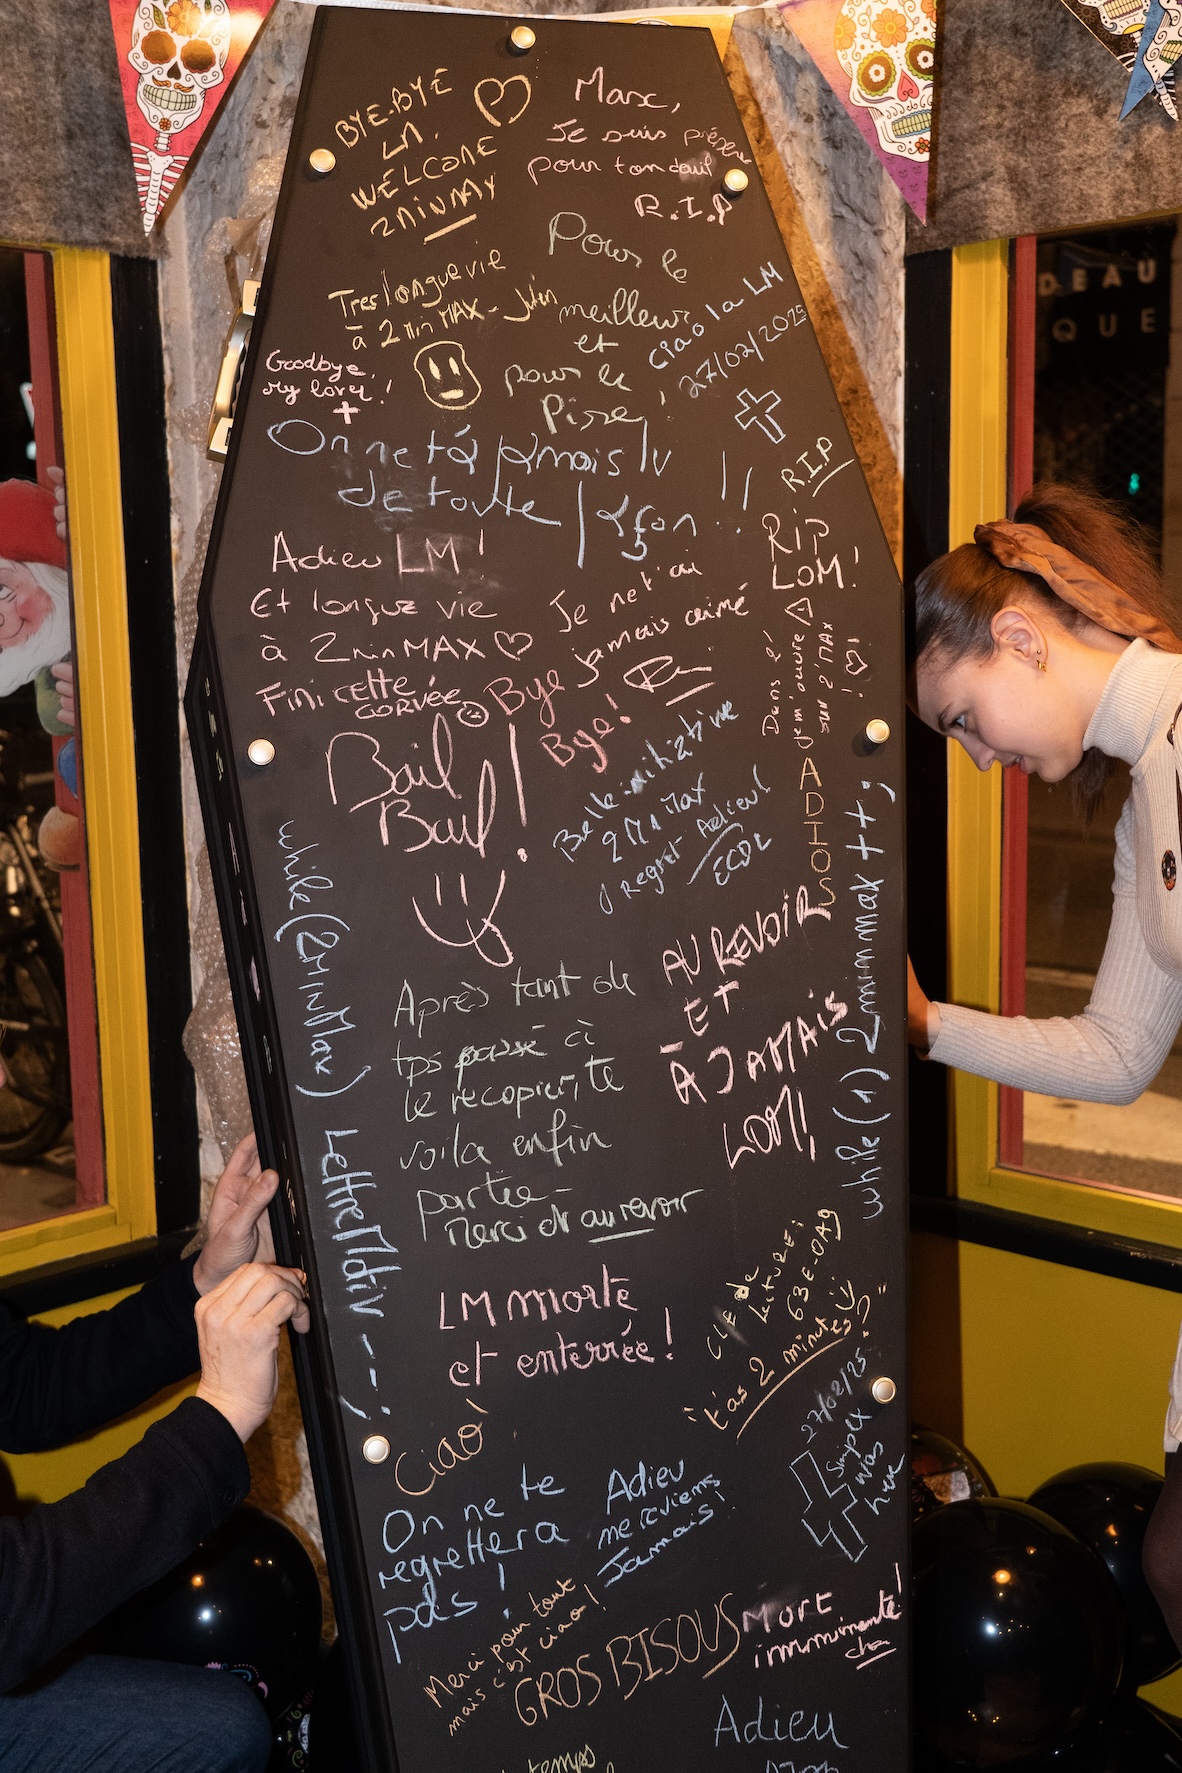 BYE-BYE
LM.
WELCOME
2MINMAX
Marc,
Je suis
pour ton deuil
R.I.P
Tres longue vie
à 2 min MAX - Julien
Pour le
meilleur
et
pour le
Pire!
Ciao la LM
27/02/2025
Goodbye,
my lover!
On ne t'a jamais lu
de toute façon !!
R.I.P
Adieu LM !
Et longue vie
à 2 min MAX
Fini cette
corvée
Je ne t'ai
jamais aimé
Rip
LOM!
Dans 2'
j'm'ouvre
sur 2'MAX
!
Bye
Bye!
Bail
Bail!
Belle initiative
2 Mn Max
Adieu!
ECDL
ADIOS
while(2MINMax) LettreMdiv--;
while(1) 2minmax++;
AU REVOIR
ET
À JAMAIS
LOM!
Après tant de
tps passé à
le recopier, te
voilà enfin
partie -
Merci et au revoir
LM morte
et enterrée!
CLE de
Lecture:
63E-0A9
"t'as 2 minutes ?"
27/02/25
Simplex
was
here
Ciao!
On ne te
regrettera
pas !
Adieu
ne reviens
Jamais!
Merci pour tout
mais c'est ciao!
GROS BISOUS
Mort
imminente!
Adieu
temps
DEAU
QUE